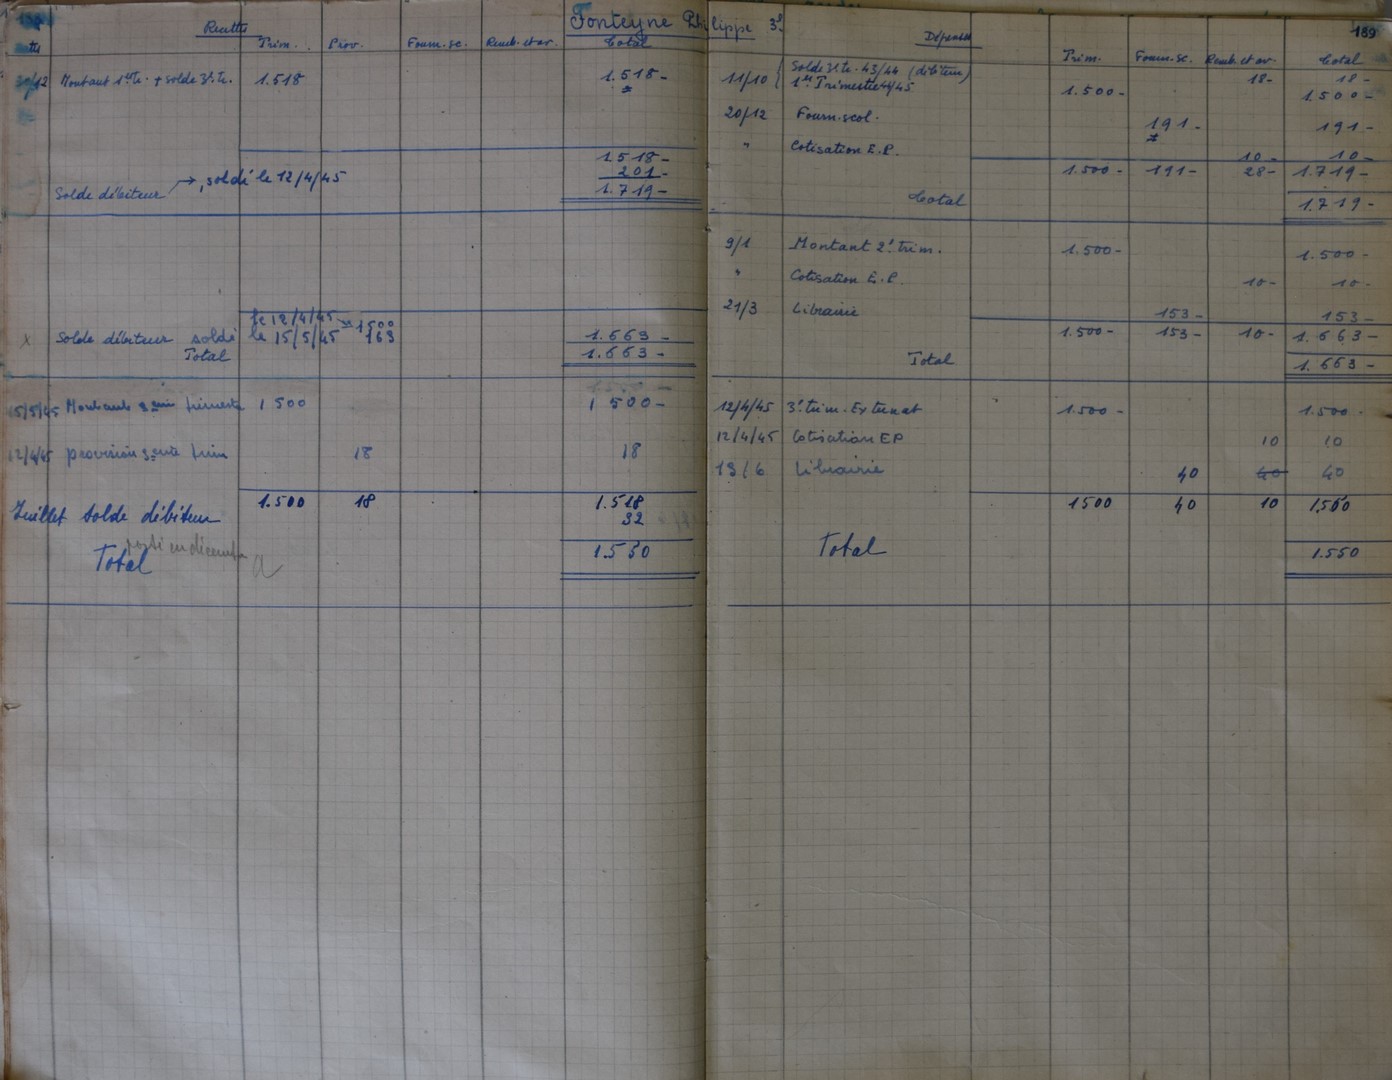 Fonteyne Philippe 3e
Recettes
Prim. Prov. Fourn. sc. Remb. et av. Total
Montant 1er tr. + solde 3e tr. 1.518 1.518 -
1518 -
201 -
Solde débiteur → , soldé le 12/4/45 1.719 -
le 12/4/45 1500
x Solde débiteur soldé le 15/5/45 163 1.663 -
Total 1.663 -
15/5/45 Montant 3ème trimestre 1 500 1 500 -
12/4/45 provision 3ème trim 18 18
1.500 18 1.518
Juillet solde débiteur 32
porté en décembre
Total 1.550
189
Dépenses
Prim. Fourn. sc. Remb. et av. Total
11/10 Solde 3e tr. 43/44 (débiteur) 18 - 18 -
1er Trimestre 44/45 1.500 - 1.500 -
20/12 Fourn. scol. 191 - 191 -
" Cotisation E.P. 10 - 10 -
1.500 - 191 - 28 - 1.719 -
Total 1.719 -
9/1 Montant 2e trim. 1.500 - 1.500 -
" Cotisation E.P. 10 - 10 -
21/3 Librairie 153 - 153 -
1.500 - 153 - 10 - 1.663 -
Total 1.663 -
12/4/45 3e trim. Externat 1.500 - 1.500 -
12/4/45 Cotisation EP 10 10
13/6 Librairie 40 40 40
1500 40 10 1,550
Total 1.550